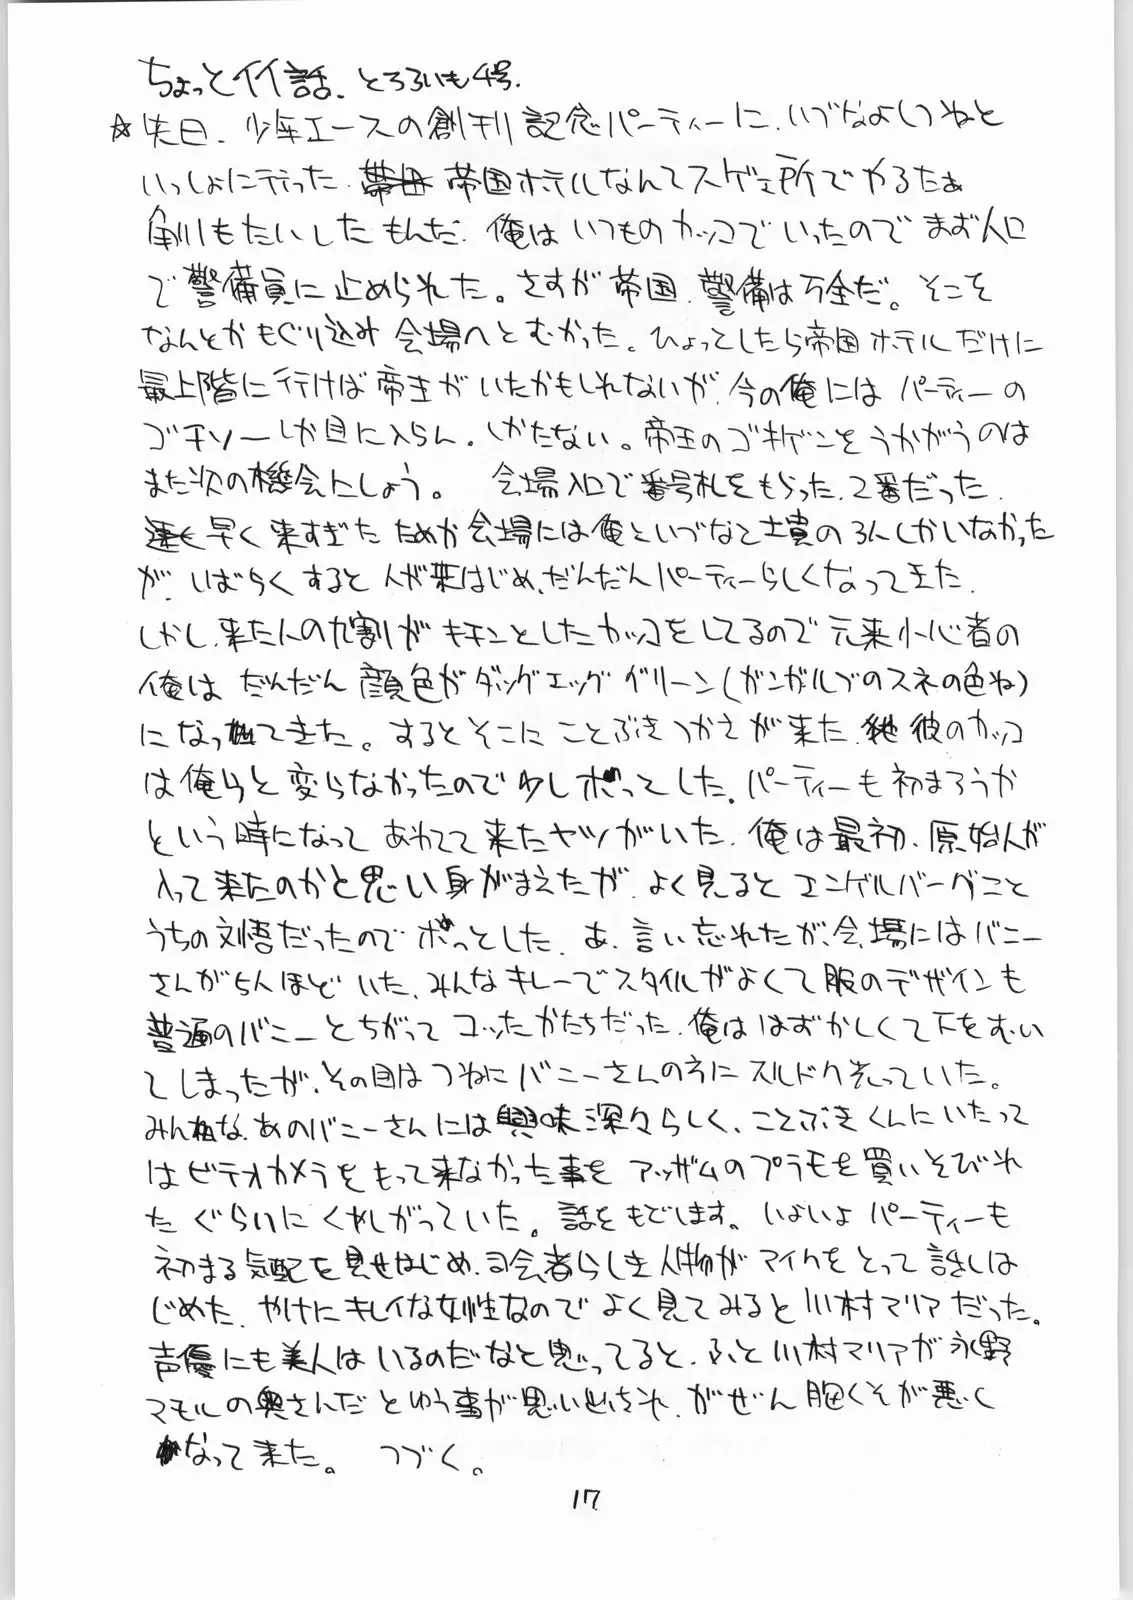 ちょっとイイ話. とろろいも4号.
☆先日、少年エースの創刊記念パーティーに、いづなよしつねと
いっしょに行った. 帝国ホテルなんてスゲェ所でやるたぁ
角川もたいしたもんだ. 俺はいつものカッコでいったのでまず入口
で警備員に止められた。さすが帝国、警備は万全だ。そこを
なんとかもぐり込み会場へとむかった。ひょっとしたら帝国ホテルだけに
最上階に行けば帝王がいたかもしれないが、今の俺にはパーティーの
ゴチソーしか目に入らん. しかたない。帝王のゴキゲンをうかがうのは
また次の機会にしよう。 会場入口で番号札をもらった. 2番だった.
早く来すぎたためか会場には俺といづなと士貴の3人しかいなかった
が、しばらくすると人が来はじめ、だんだんパーティーらしくなってきた.
しかし、来た人の九割がキチンとしたカッコをしてるので元来小心者の
俺はだんだん顔色がダックエッググリーン(ガンガルブのスネの色ね)
になってきた。するとそこにことぶきつかさが来た. 彼のカッコ
は俺らと変らなかったので少しホッとした. パーティーも初まろうか
という時になってあわてて来たヤツがいた. 俺は最初、原始人が
入って来たのかと思い身がまえたが、よく見るとエンゲルバーグこと
うちの文悟だったのでホッとした. あ、言い忘れたが、会場にはバニー
さんが5人ほどいた. みんなキレーでスタイルがよくて服のデザインも
普通のバニーとちがってコッたかたちだった. 俺ははずかしくて下をむい
てしまったが、その目はつねにバニーさんの方にスルドク光っていた。
みんな、あのバニーさんには興味深々らしく、ことぶきくんにいたって
はビデオカメラをもって来なかった事をアッザムのプラモを買いそびれ
たぐらいにくやしがっていた。話をもどします。いよいよパーティーも
初まる気配を見せはじめ、司会者らしき人物がマイクをとって話しは
じめた. やけにキレイな女性なのでよく見てみると川村マリアだった。
声優にも美人はいるのだなと思ってると、ふと川村マリアが永野
マモルの奥さんだとゆう事が思い出され、がぜん胸くそが悪く
なって来た。 つづく。
17